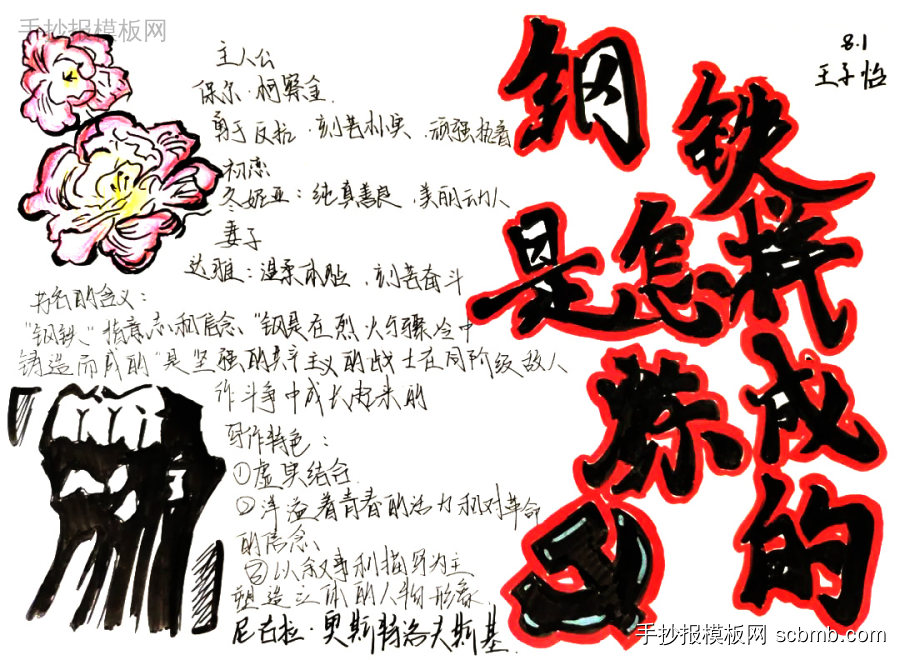 手抄报模板网
8.1
王子怡
钢铁是怎样炼成的
主人公
保尔·柯察金
勇于反抗·刻苦朴实 顽强执着
初恋
冬妮亚：纯真善良、美丽动人
妻子
达雅：温柔体贴、刻苦奋斗
书名的含义：
"钢铁"指意志和信念"钢是在烈火与骤冷中
铸造而成的"是坚强的共产主义的战士在同阶级敌人
作斗争中成长起来的
写作特色：
①虚实结合
②洋溢着青春的活力和对革命
的信念
③以叙事和描写为主
塑造立体的人物形象
尼古拉·奥斯特洛夫斯基
手抄报模板网 scbmb.com